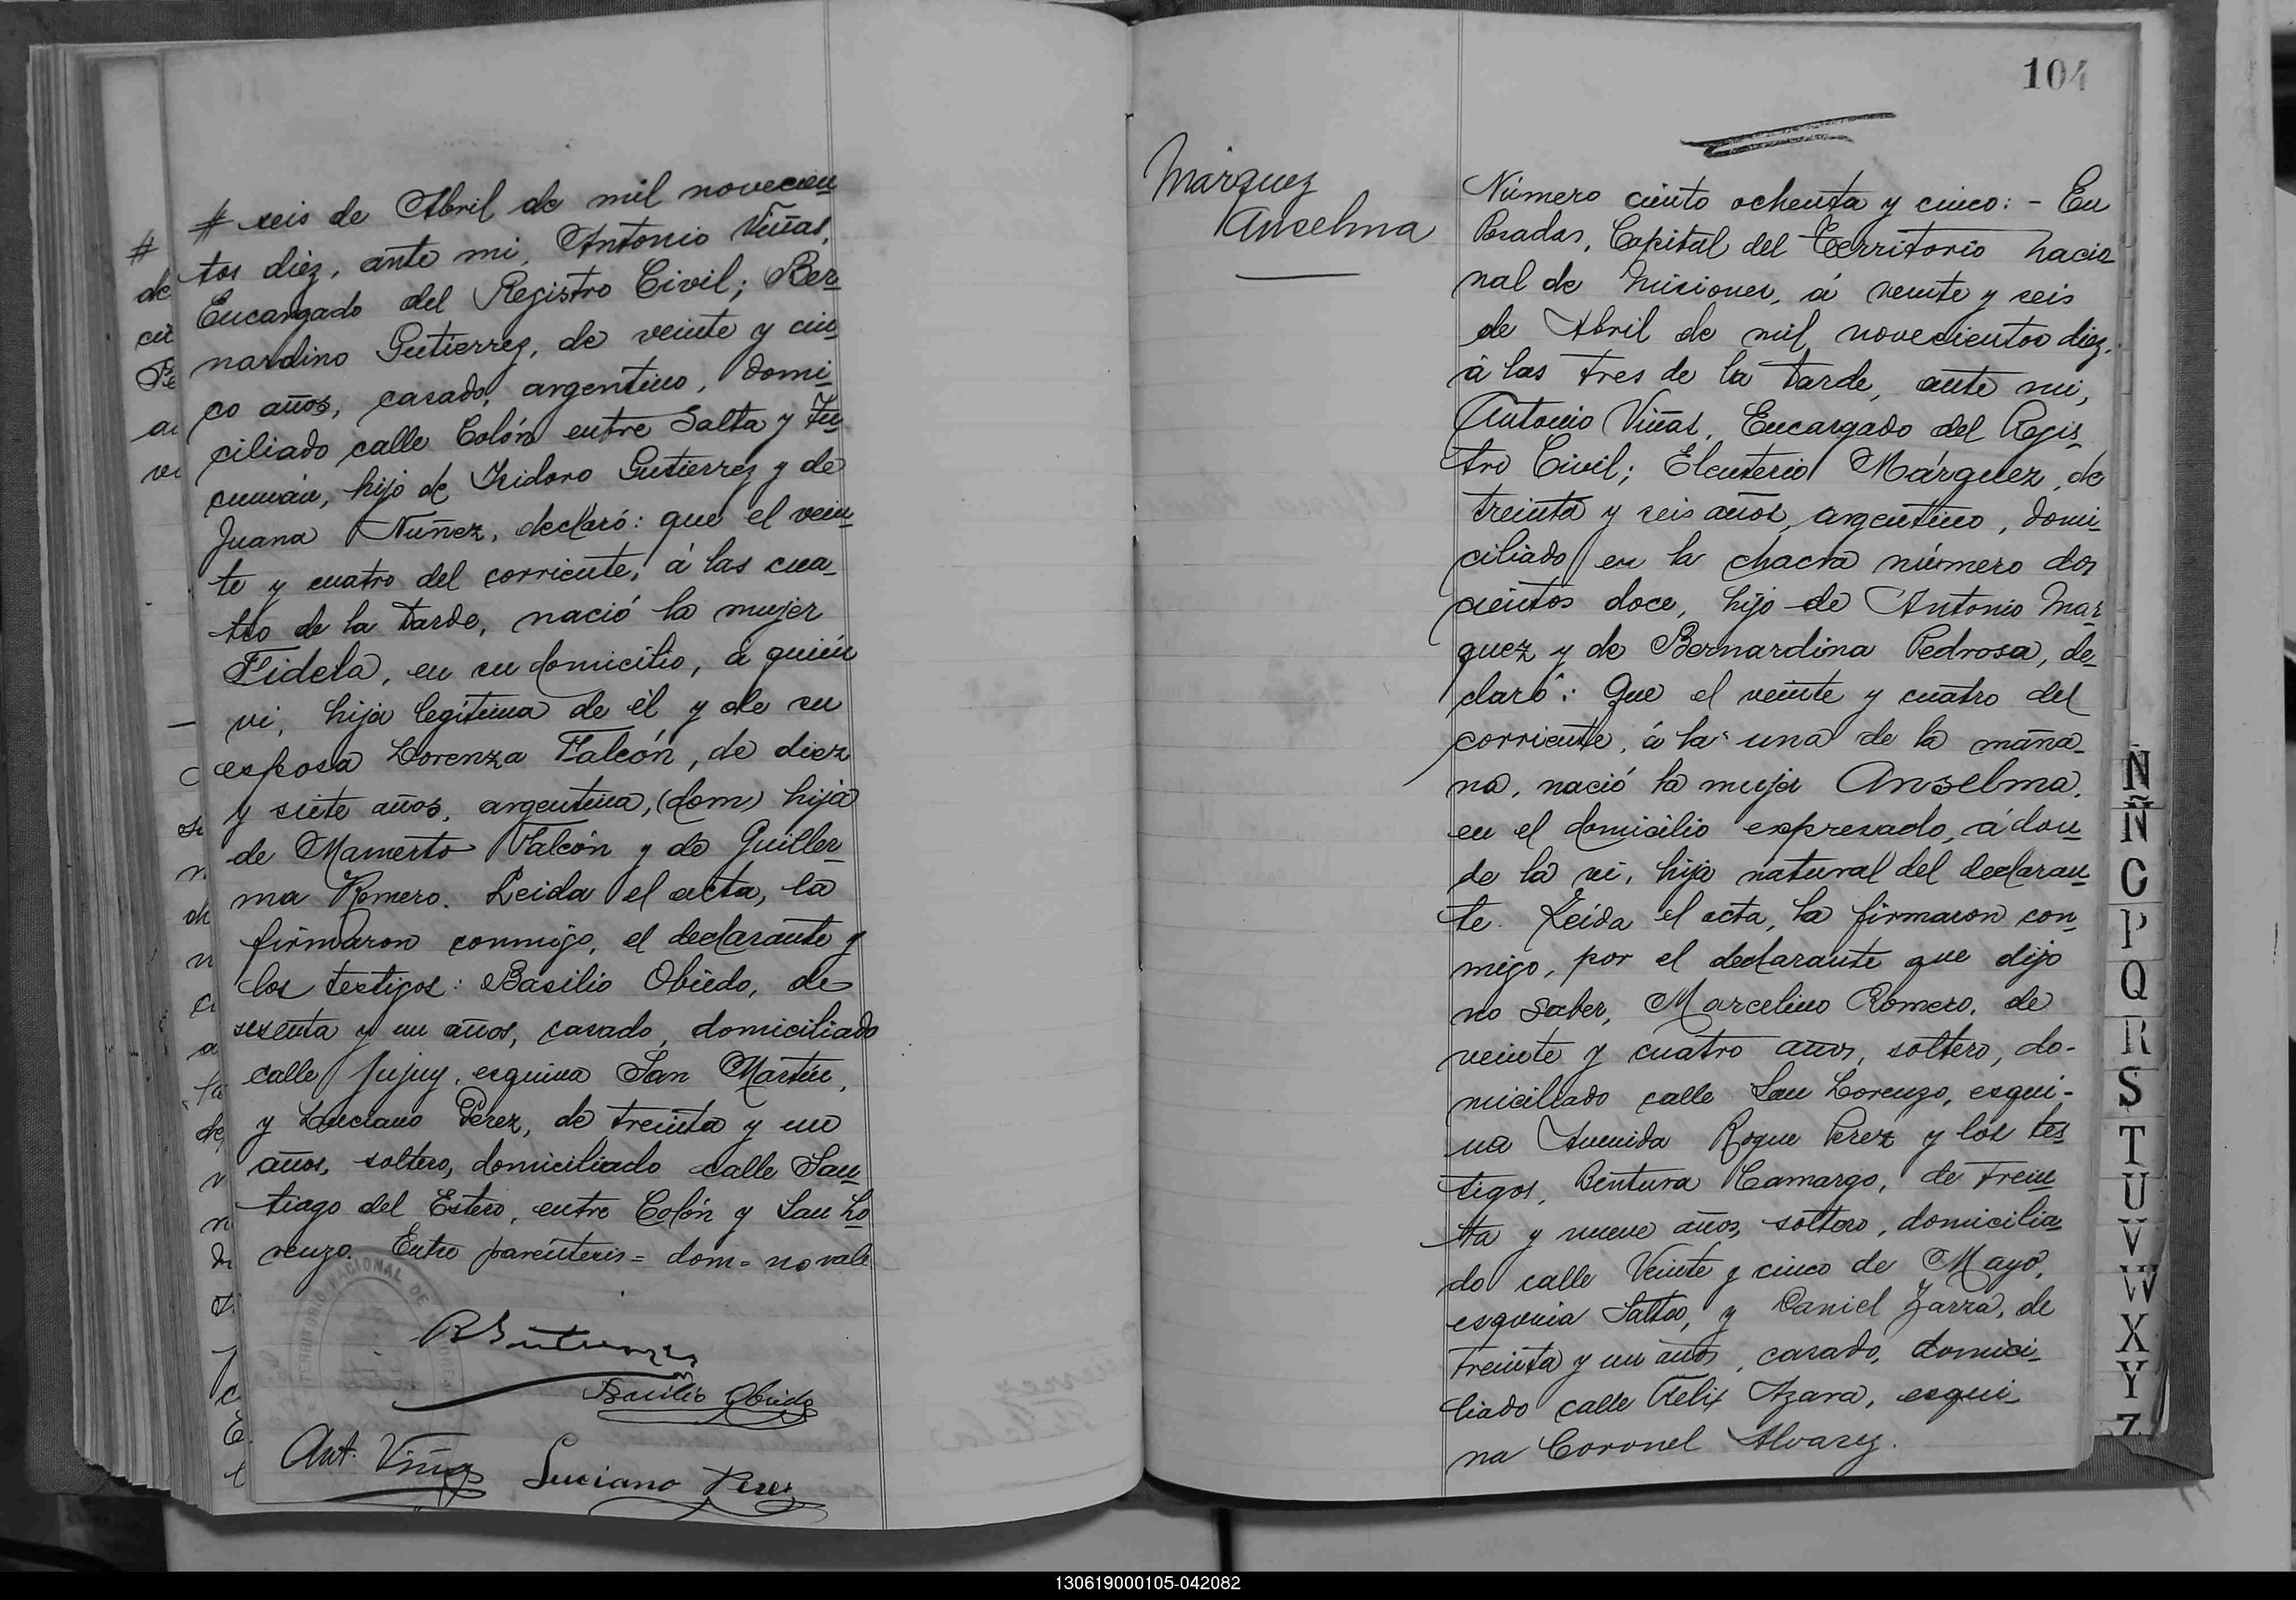 # seis de Abril de mil novecien
tos diez, ante mi, Antonio Viñas,
Encargado del Registro Civil; Ber
nardino Gutierrez, de veinte y cin
co años, casado, argentino, domi
ciliado calle Colón entre Salta y Tu
cumán, hijo de Isidoro Gutierrez y de
Juana Nuñez, declaró: que el vein
te y cuatro del corriente, á las cua
tro de la tarde, nació la mujer
Fidela, en su domicilio, á quién
vi, hija legítima de él y de su
esposa Lorenza Falcón, de diez
y siete años, argentina, (dom) hija
de Mamerto Falcón y de Guiller
ma Romero. Leida el acta, la
firmaron conmigo, el declarante y
los testigos: Basilio Obiedo, de
sesenta y un años, casado, domiciliado
calle Jujuy, esquina San Martín,
y Luciano Perez, de treinta y un
años, soltero, domiciliado calle San
tiago del Estero, entre Colón y San Lo
renzo. Entre paréntesis = dom = no vale
B Gutierrez
Basilio Obiedo
Ant. Viñas Luciano Perez
TERRITORIO NACIONAL DE
104
Márquez
Anselma
Número ciento ochenta y cinco: - En
Posadas, Capital del Territorio nacio
nal de Misiones, á veinte y seis
de Abril de mil novecientos diez,
á las tres de la tarde, ante mi,
Antonio Viñas, Encargado del Regis
tro Civil; Eleuterio Márquez, de
treinta y seis años, argentino, domi
ciliado en la chacra número dos
cientos doce, hijo de Antonio Mar
quez y de Bernardina Pedrosa, de
claró: Que el veinte y cuatro del
corriente, á la una de la maña
na, nació la mujer Anselma,
en el domicilio expresado, á don
de la vi, hija natural del declaran
te. Leida el acta, la firmaron con
migo, por el declarante que dijo
no saber, Marcelino Romero, de
veinte y cuatro años, soltero, do-
miciliado calle San Lorenzo, esqui-
na Avenida Roque Perez y los tes
tigos, Bentura Camargo, de trein
ta y nueve años, soltero, domicilia
do calle Veinte y cinco de Mayo,
esquina Salta, y Daniel Zarza, de
treinta y un años, casado, domici
liado calle Felix Azara, esqui
na Coronel Alvarez.
N
Ñ
O
P
Q
R
S
T
U
V
W
X
Y
Z
130619000105-042082